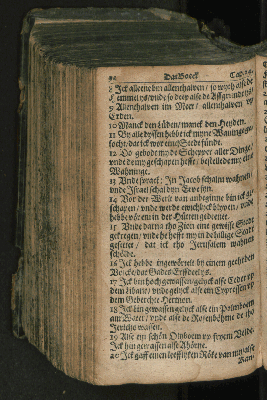 Dat Boeck Cap. 24.
8 Ick alleine bin allenthaluen / so wyth alse de
Hemmel ys vnde so deep alse de Affgrundt ys /
9 Allenthaluen im Meer / allenthaluen vp
Erden.
10 Manck den Lüden / manck den Heyden.
11 By alle dyssen hebbe ick myne Waninge ge-
socht / dat ick vor eine Stede fünde.
12 Do gebodt my de Schepper aller Dinge /
vnde de my geschapen hefft / bestellede my eine
Wahninge.
13 Vnde sprack: In Jacob schalstu wahnen /
vnde Israel schal dyn Erve syn.
14 Vor der Werlt van anbeginne bin ick ge-
schapen / vnde werde ewichlyck blyven / vnde
hebbe vor em in der Hütten gedienet.
15 Vnde darna tho Zion eine gewisse Stede
gekregen / vnde he hefft my in de hillige Stadt
gesettet / dat ick tho Jerusalem wahnen
schölde.
16 Ick hebbe ingewörtelt by einem geehreden
Volcke dat Gades Erffdeel ys.
17 Ick bin hoch gewassen gelyck alse Ceder vp
dem Libano / vnde gelyck alse ein Cypressen vp
dem Geberchte Hermon.
18 Ick bin gewassen gelyck alse ein Palmboem
am Water / vnde alse de Rosenböhme de tho
Jericho wassen.
19 Alse ein schön Olyboem vp fryem Velde.
Ick bin gewassen alse Ahörne.
20 Ick gaff einen lefflyken Röke van my / alse
Kan-